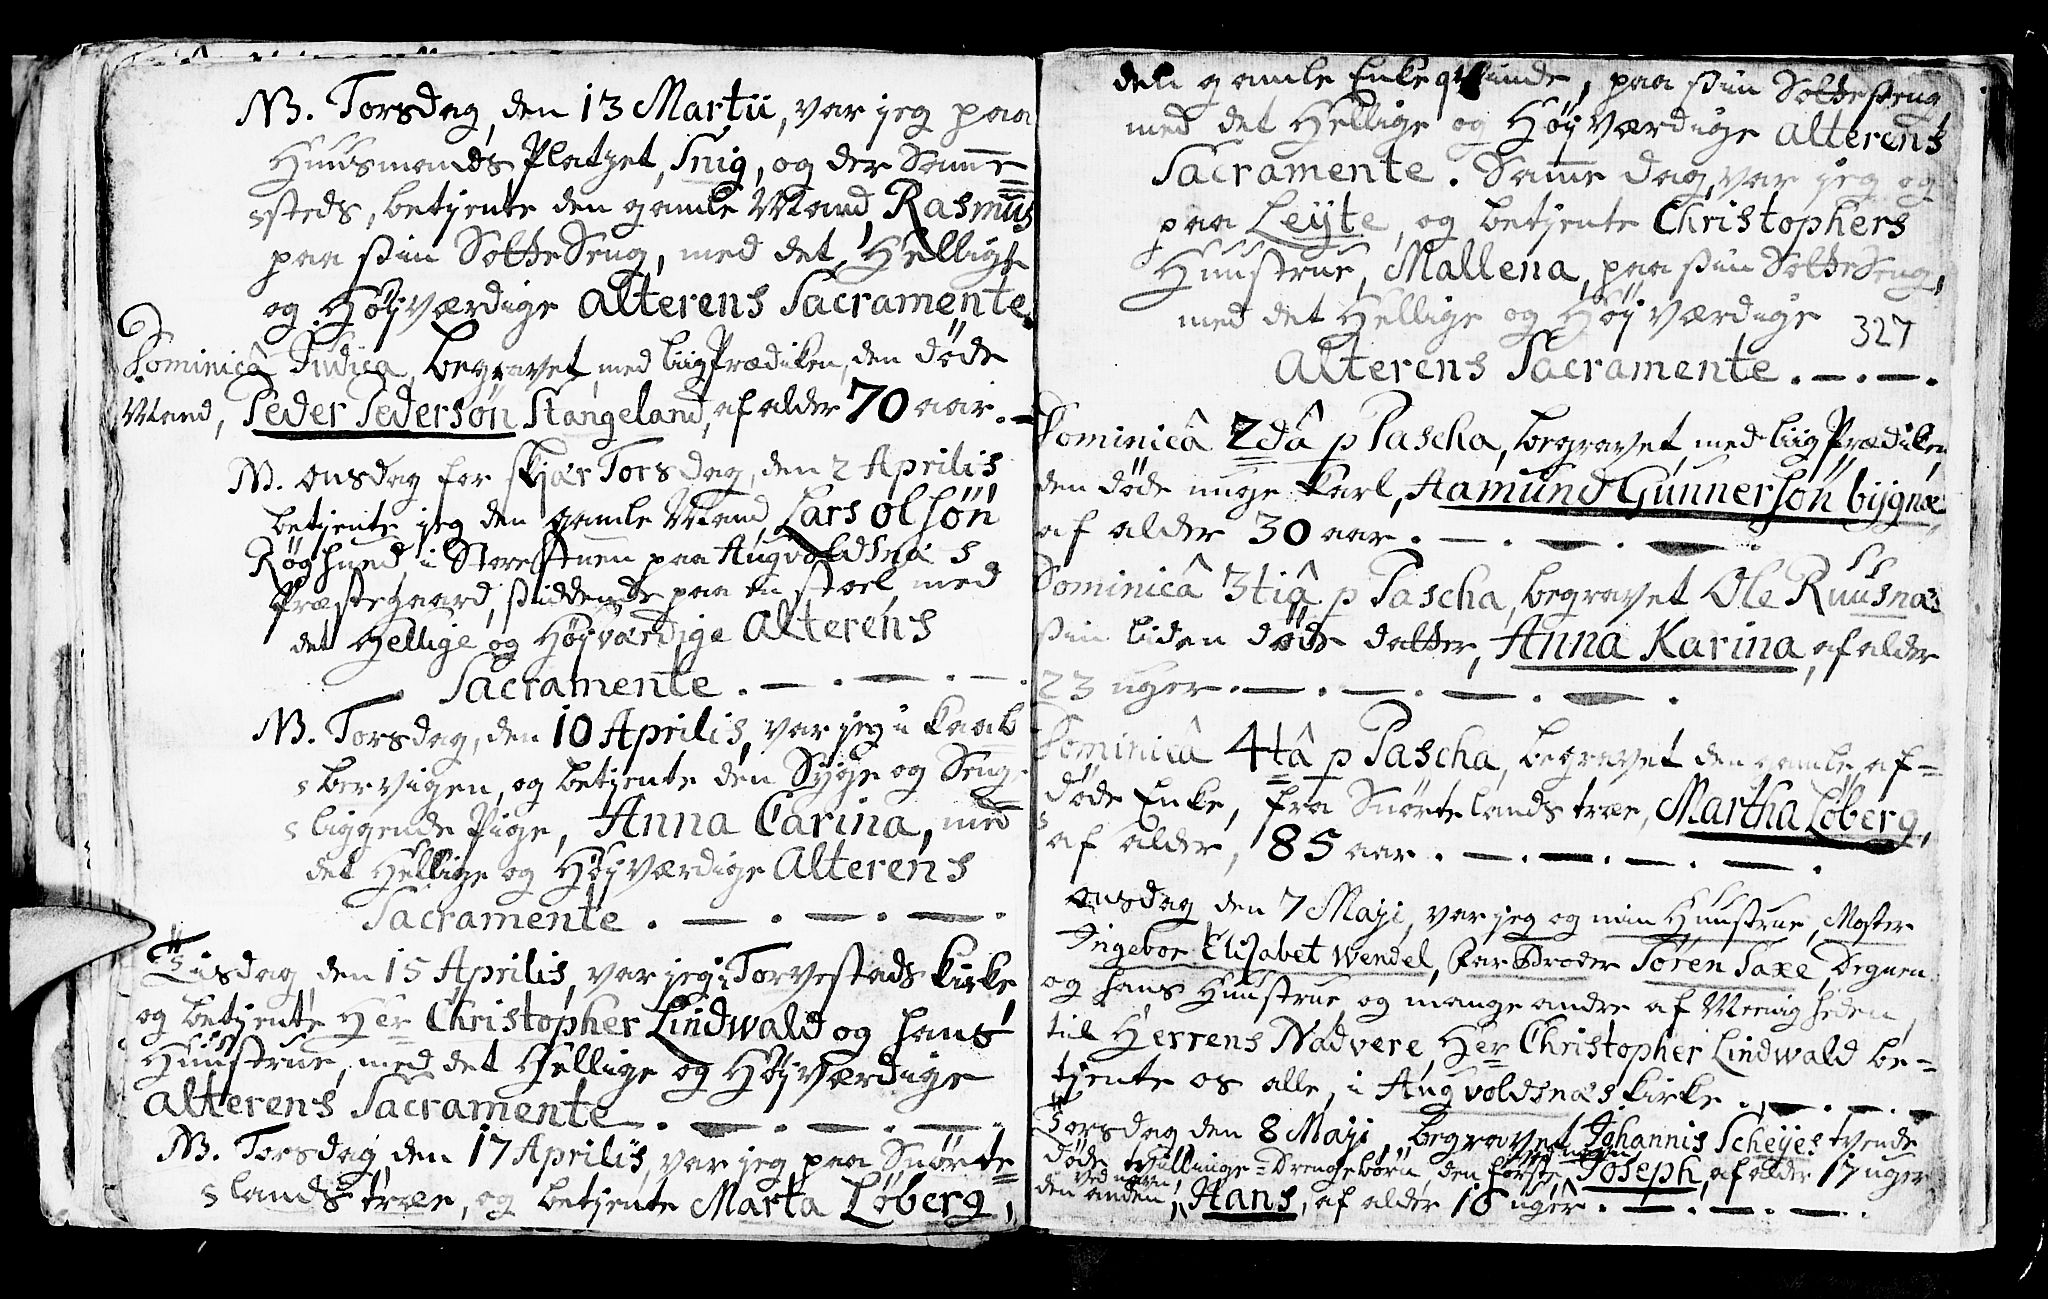 NB. Torsdag, den 13 Martii, var jeg paa
Huusmands Platzet, Snig, og der Samme=
steds, betjente den gamle Mand, Rasmus
paa sin SotteSeng, med det Hellige
og Høyværdige Alterens Sacramente.
Dominicâ Judica, begravet, med liigPrædiken, den døde
Mand, Peder Pedersøn Stangeland, af alder 70 aar. —
NB. Onsdag for SkjærTorsdag, den 2 Aprilis
betjente jeg den gamle Mand, Lars Olsøn
Røghued i Storestuen paa Augvoldsnæs
Præstegaard, siddende paa en stoel, med
det Hellige og Høyværdige Alterens
Sacramente. — . — . — .
NB. Torsdag, den 10 Aprilis, var jeg i Kaab
bervigen, og betjente den Syge og Seng=
liggende Pige, Anna Carina, med
det Hellige og Høyværdige Alterens
Sacramente. — . — . — .
Tiisdag, den 15 Aprilis, var jeg i Torvestads Kirke
og betjente Her Christopher Lindwald og hans
Huustrue, med det Hellige og Høyværdige
Alterens Sacramente. — . — . — .
NB. Torsdag, den 17 Aprilis, var jeg paa Snørte=
landstræe, og betjente Marta Løberg,
den gamle Enkeqvinde, paa sin Sottesseng
med det Hellige og Høyværdige Alterens
Sacramente. Samme dag, var jeg og
paa Leyte, og betjente Christophers
Huustrue, Mallena, paa sin SotteSeng,
med det Hellige og Høyværdige
327
Alterens Sacramente. — . — .
Dominicâ 2dâ p Pascha, begravet, med liigPrædiken,
den døde unge Karl, Aamund Gunnersøn bygnæ
af alder 30 aar. — . — . — .
Dominicâ 3tiâ p Pascha, begravet Ole Ruusnæs
sin liden døde datter, Anna Karina, af alder
23 uger. — . — . — . — .
Dominicâ 4tâ p Pascha, begravet den gamle af=
døde Enke, fra Snørtelandstræe, Martha Løberg,
af alder, 85 aar. — . — . — . — .
Onsdag den 7 Maji, var jeg og min Huustrue, Moster
Ingebor Elisabet Wendel, FarBroder Søren Saxe, Degnen
og hans Huustrue og mange andre af Menigheden,
til Herrens Nadvere, Her Christopher Lindwald be=
tjente os alle, i Augvoldsnæs Kirke. — . — . —
Torsdag den 8 Maji, begravet Johannis Scheyes tvende
døde tvillinge=Drengebørn, den første, ved navn, Joseph, af alder 17 uger
den anden, ved navn, Hans, af alder 18 uger. — . — . — .